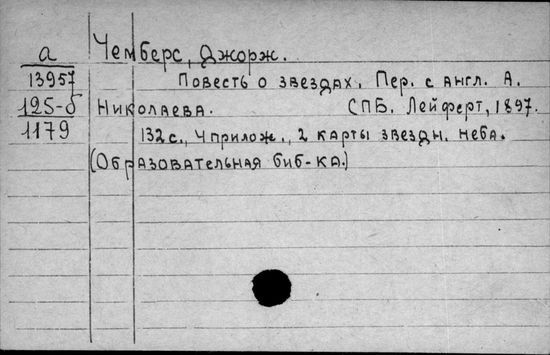 а Чемберс, Джорж.
13957 Повесть о звездах. Пер. с англ. А.
125-б Николаева. СПБ. Лейферт, 1897.
1179 132 с., 4 прилож., 2 карты звездн. неба.
(Образовательная биб-ка.)